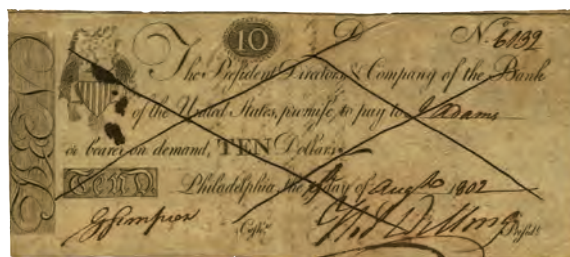 10 D N. 6132
The President Directors & Company of the Bank
of the United States, promise to pay to J Adams
or bearer on demand, TEN Dollars
TEN Philadelphia the day of Aug 1802
G Simpson Cashr. Tho Willing Presidt.